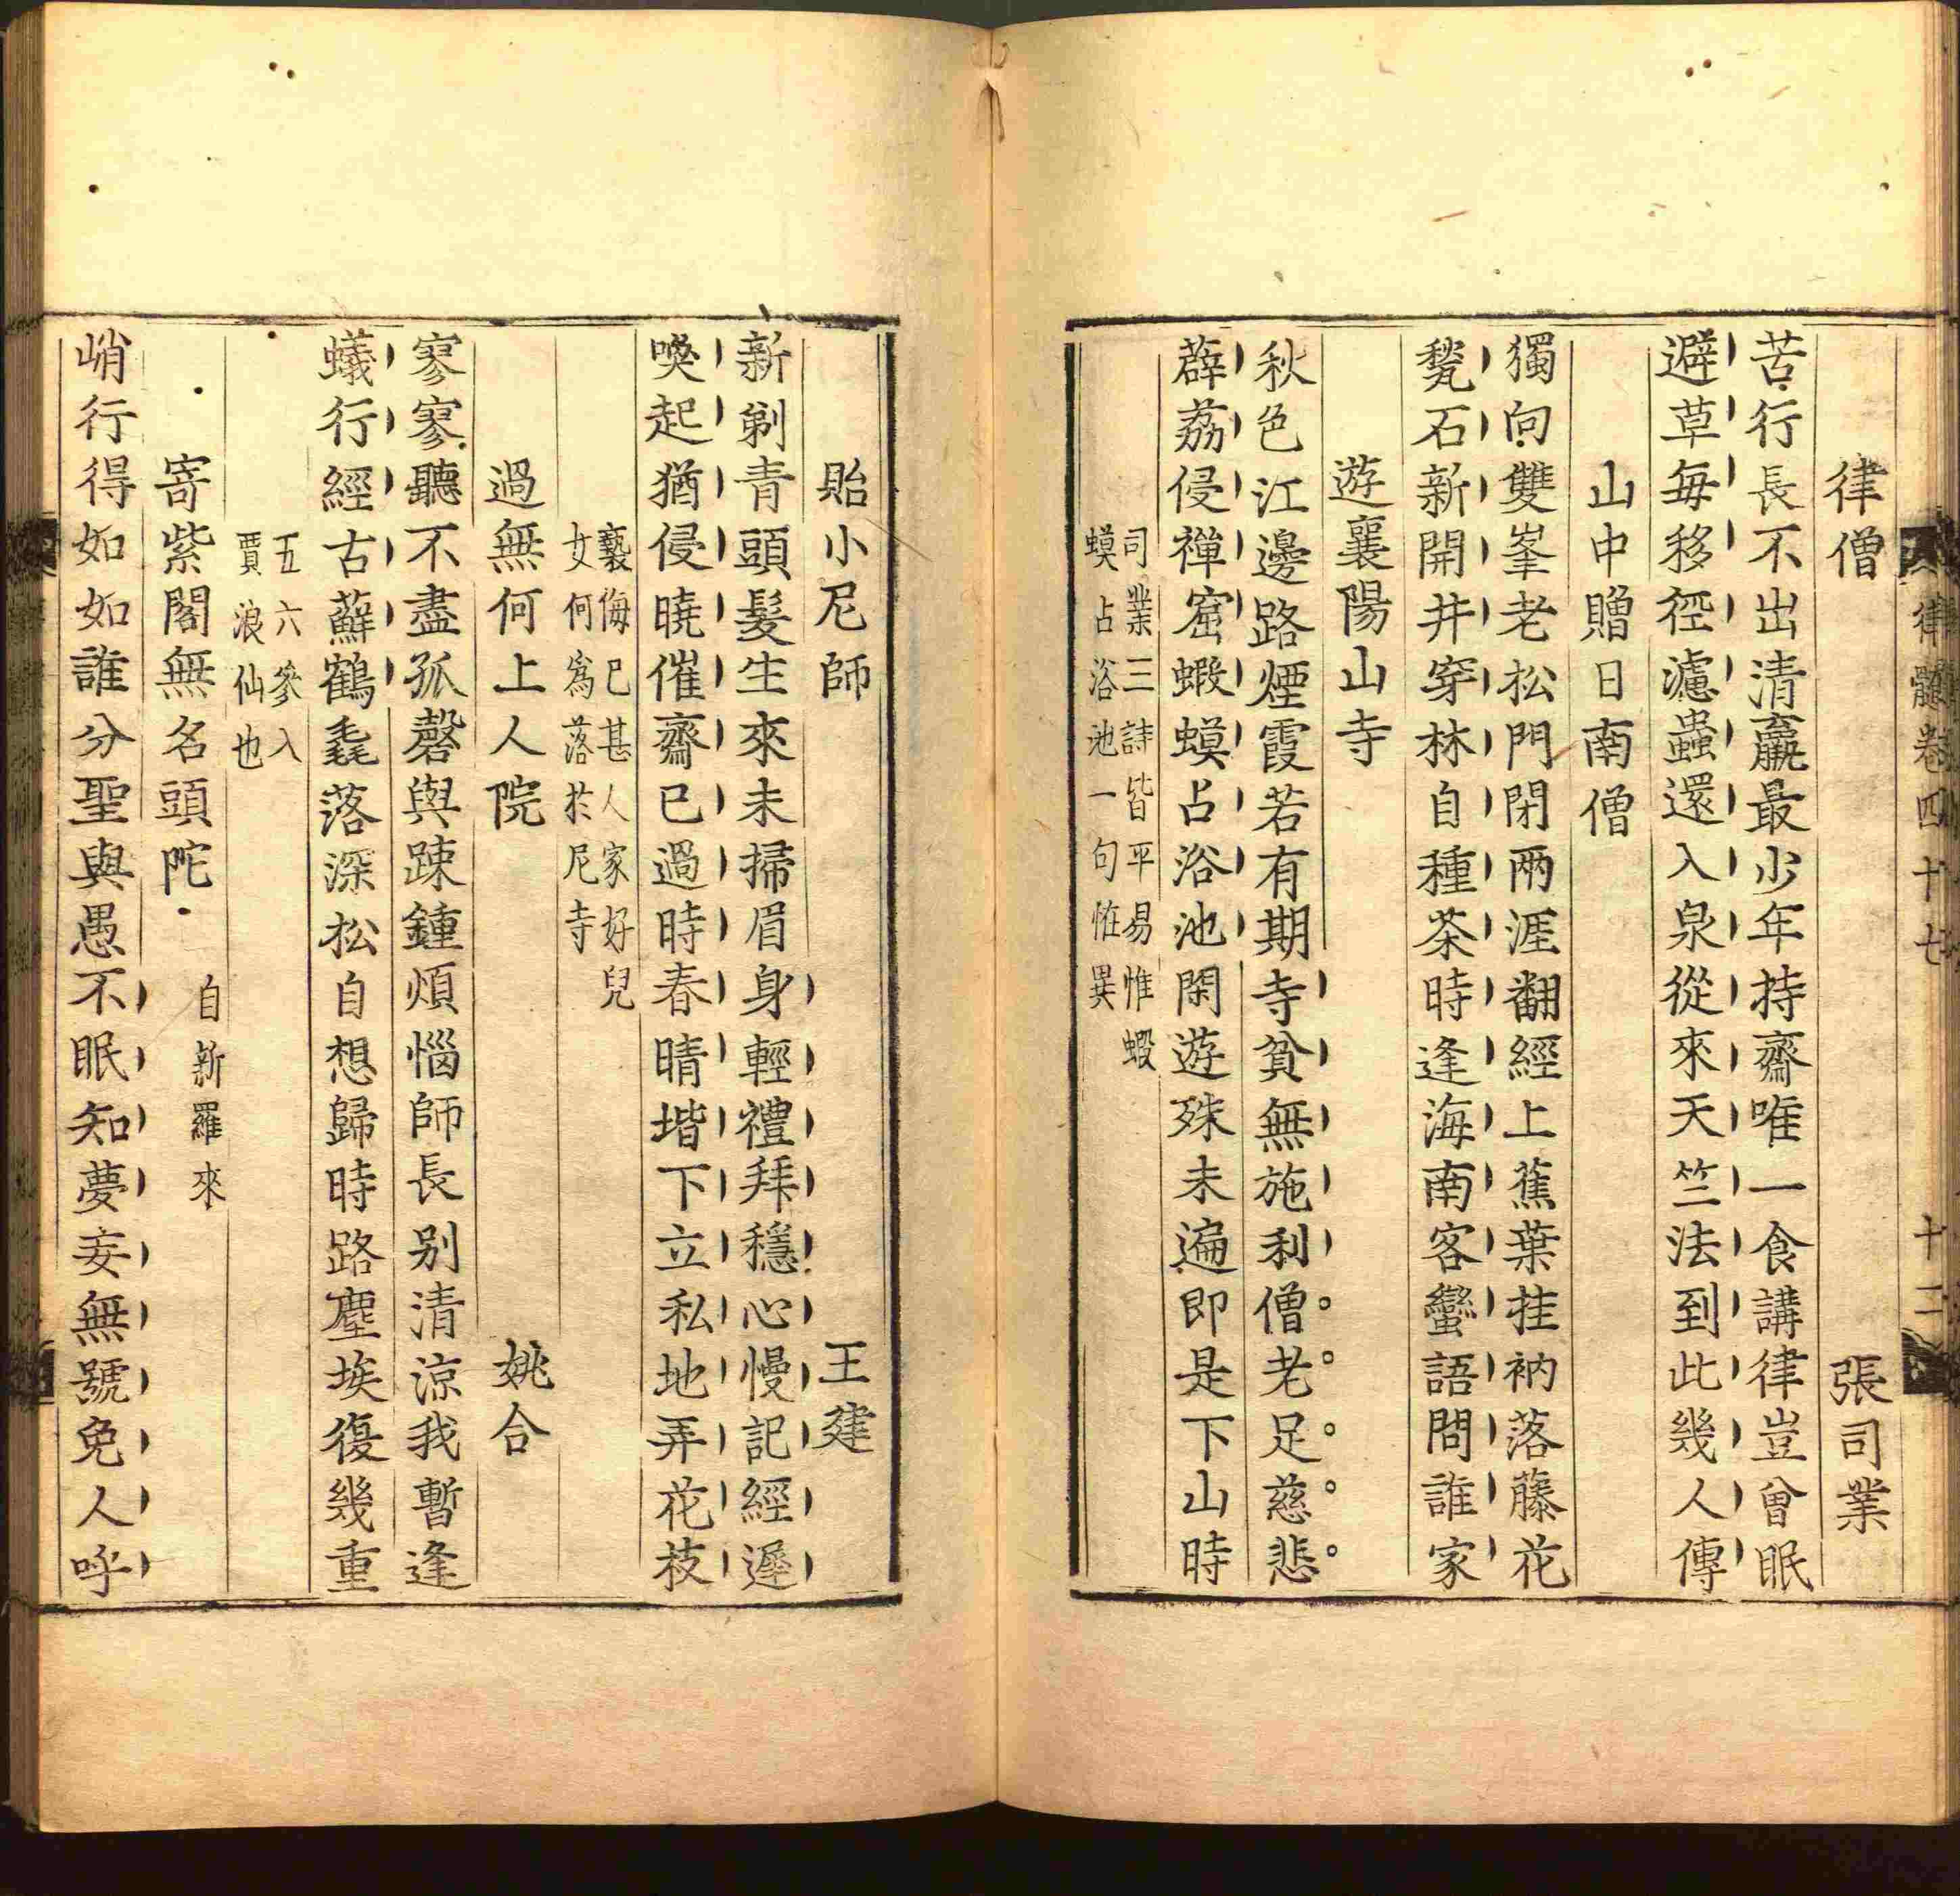 律髓卷四十七
十二
律僧
張司業
苦行長不出清羸最少年持齋唯一食講律豈曾眠
避草每移徑濾蟲還入泉從來天竺法到此幾人傳
山中贈日南僧
獨向雙峯老松門閉兩涯翻經上蕉葉挂衲落藤花
甃石新開井穿林自種茶時逢海南客蠻語問誰家
遊襄陽山寺
秋色江邊路煙霞若有期寺貧無施利僧老足慈悲
薜荔侵禪窟蝦蟆占浴池閑遊殊未遍即是下山時
司業三詩皆平易惟蝦
蟆占浴池一句怪異
貽小尼師
王建
新剃青頭髮生來未掃眉身輕禮拜穩心慢記經遲
喚起猶侵曉催齋已過時春晴堦下立私地弄花枝
褻侮已甚人家好兒
女何爲落於尼寺
過無何上人院
姚合
寥寥聽不盡孤磬與踈鍾煩惱師長别清涼我暫逢
蟻行經古蘚鶴毳落深松自想歸時路塵埃復幾重
五六參入
賈浪仙也
寄紫閣無名頭陀
自新羅來
峭行得如如誰分聖與愚不眠知夢妄無號免人呼